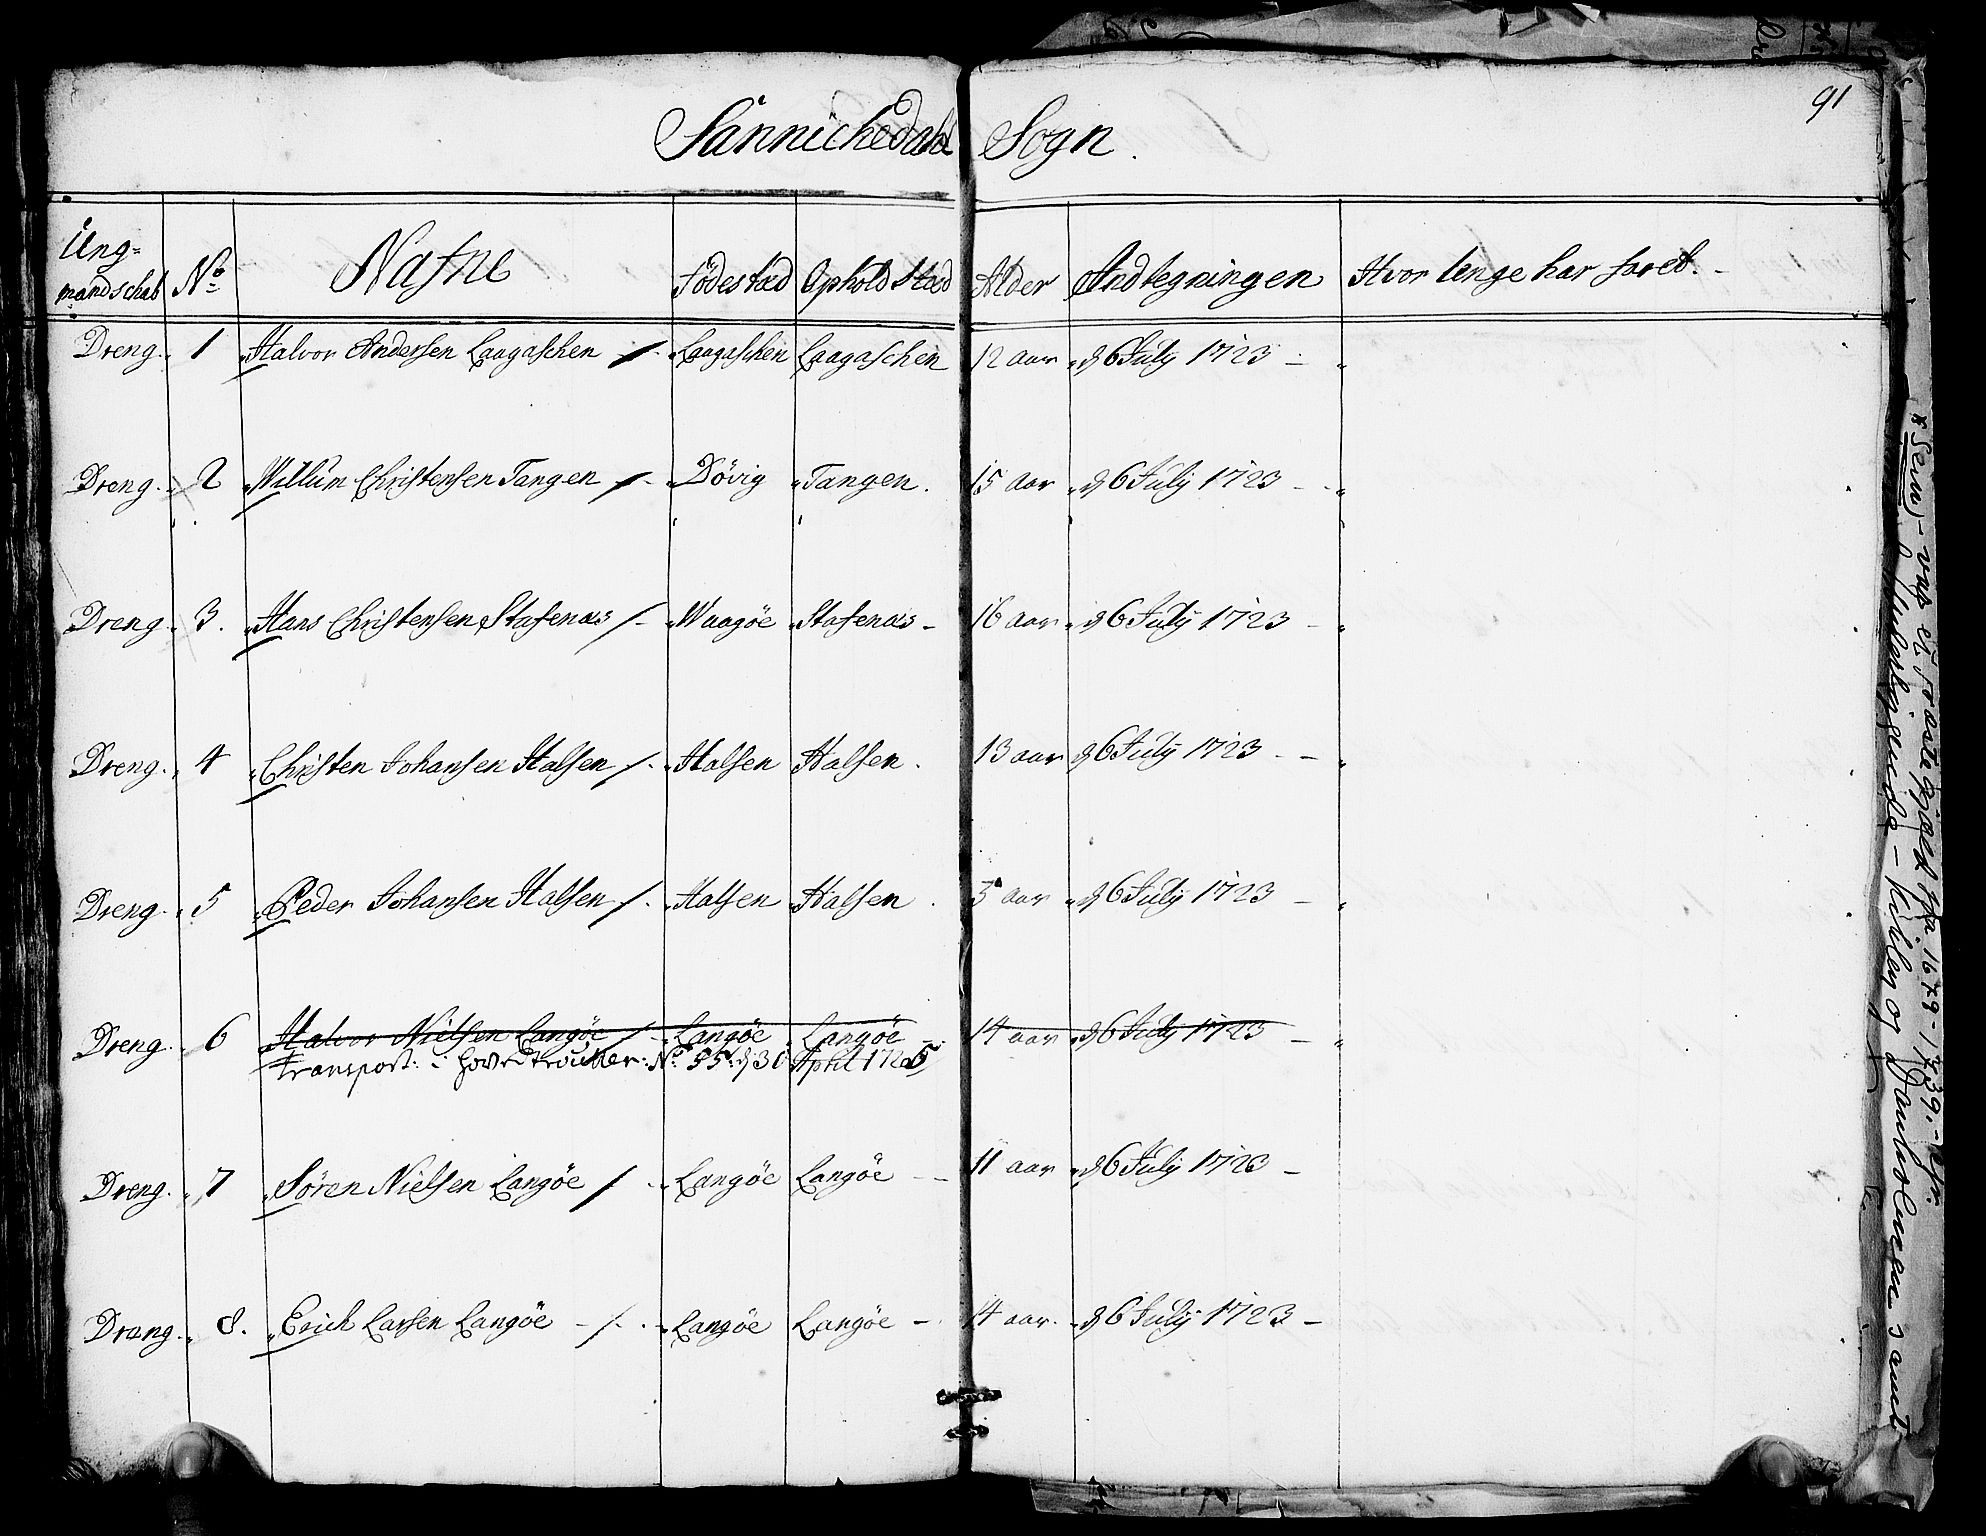 91
Sannichedahl Sogn.
Ung=
mandschab No Nafne Födestad Ophold Stæd Alder Andtegningen Hvor lenge har faret.
Dreng. 1 Halvor Andersen Laagaschen Laagaschen Laagaschen 12 aar d 6 July 1723
Dreng. 2 Willum Christensen Tangen Dövig Tangen. 15 aar d 6 July 1723
Dreng 3. Hans Christensen Stafenæs Waagöe Stafenæs 16 aar d 6 July 1723
Dreng. 4 Christen Johansen Halsen Halsen Halsen. 13 aar d 6 July 1723
Dreng. 5 Peder Johansen Halsen Halsen Halsen 5 aar d 6 July 1723
Dreng. 6 Halvor Nielsen Langöe Langöe Langöe 14 aar d 6 July 1723
transport: i No 55 d 30 April 1725
Dreng. 7 Sören Nielsen Langöe Langöe Langöe 11 aar d 6 July 1723
Dreng. 8. Erich Larsen Langöe Langöe Langöe 14 aar. d 6 July 1723
x Sem, - var ej Præstegjæld fra 1679-1739. -
og samt